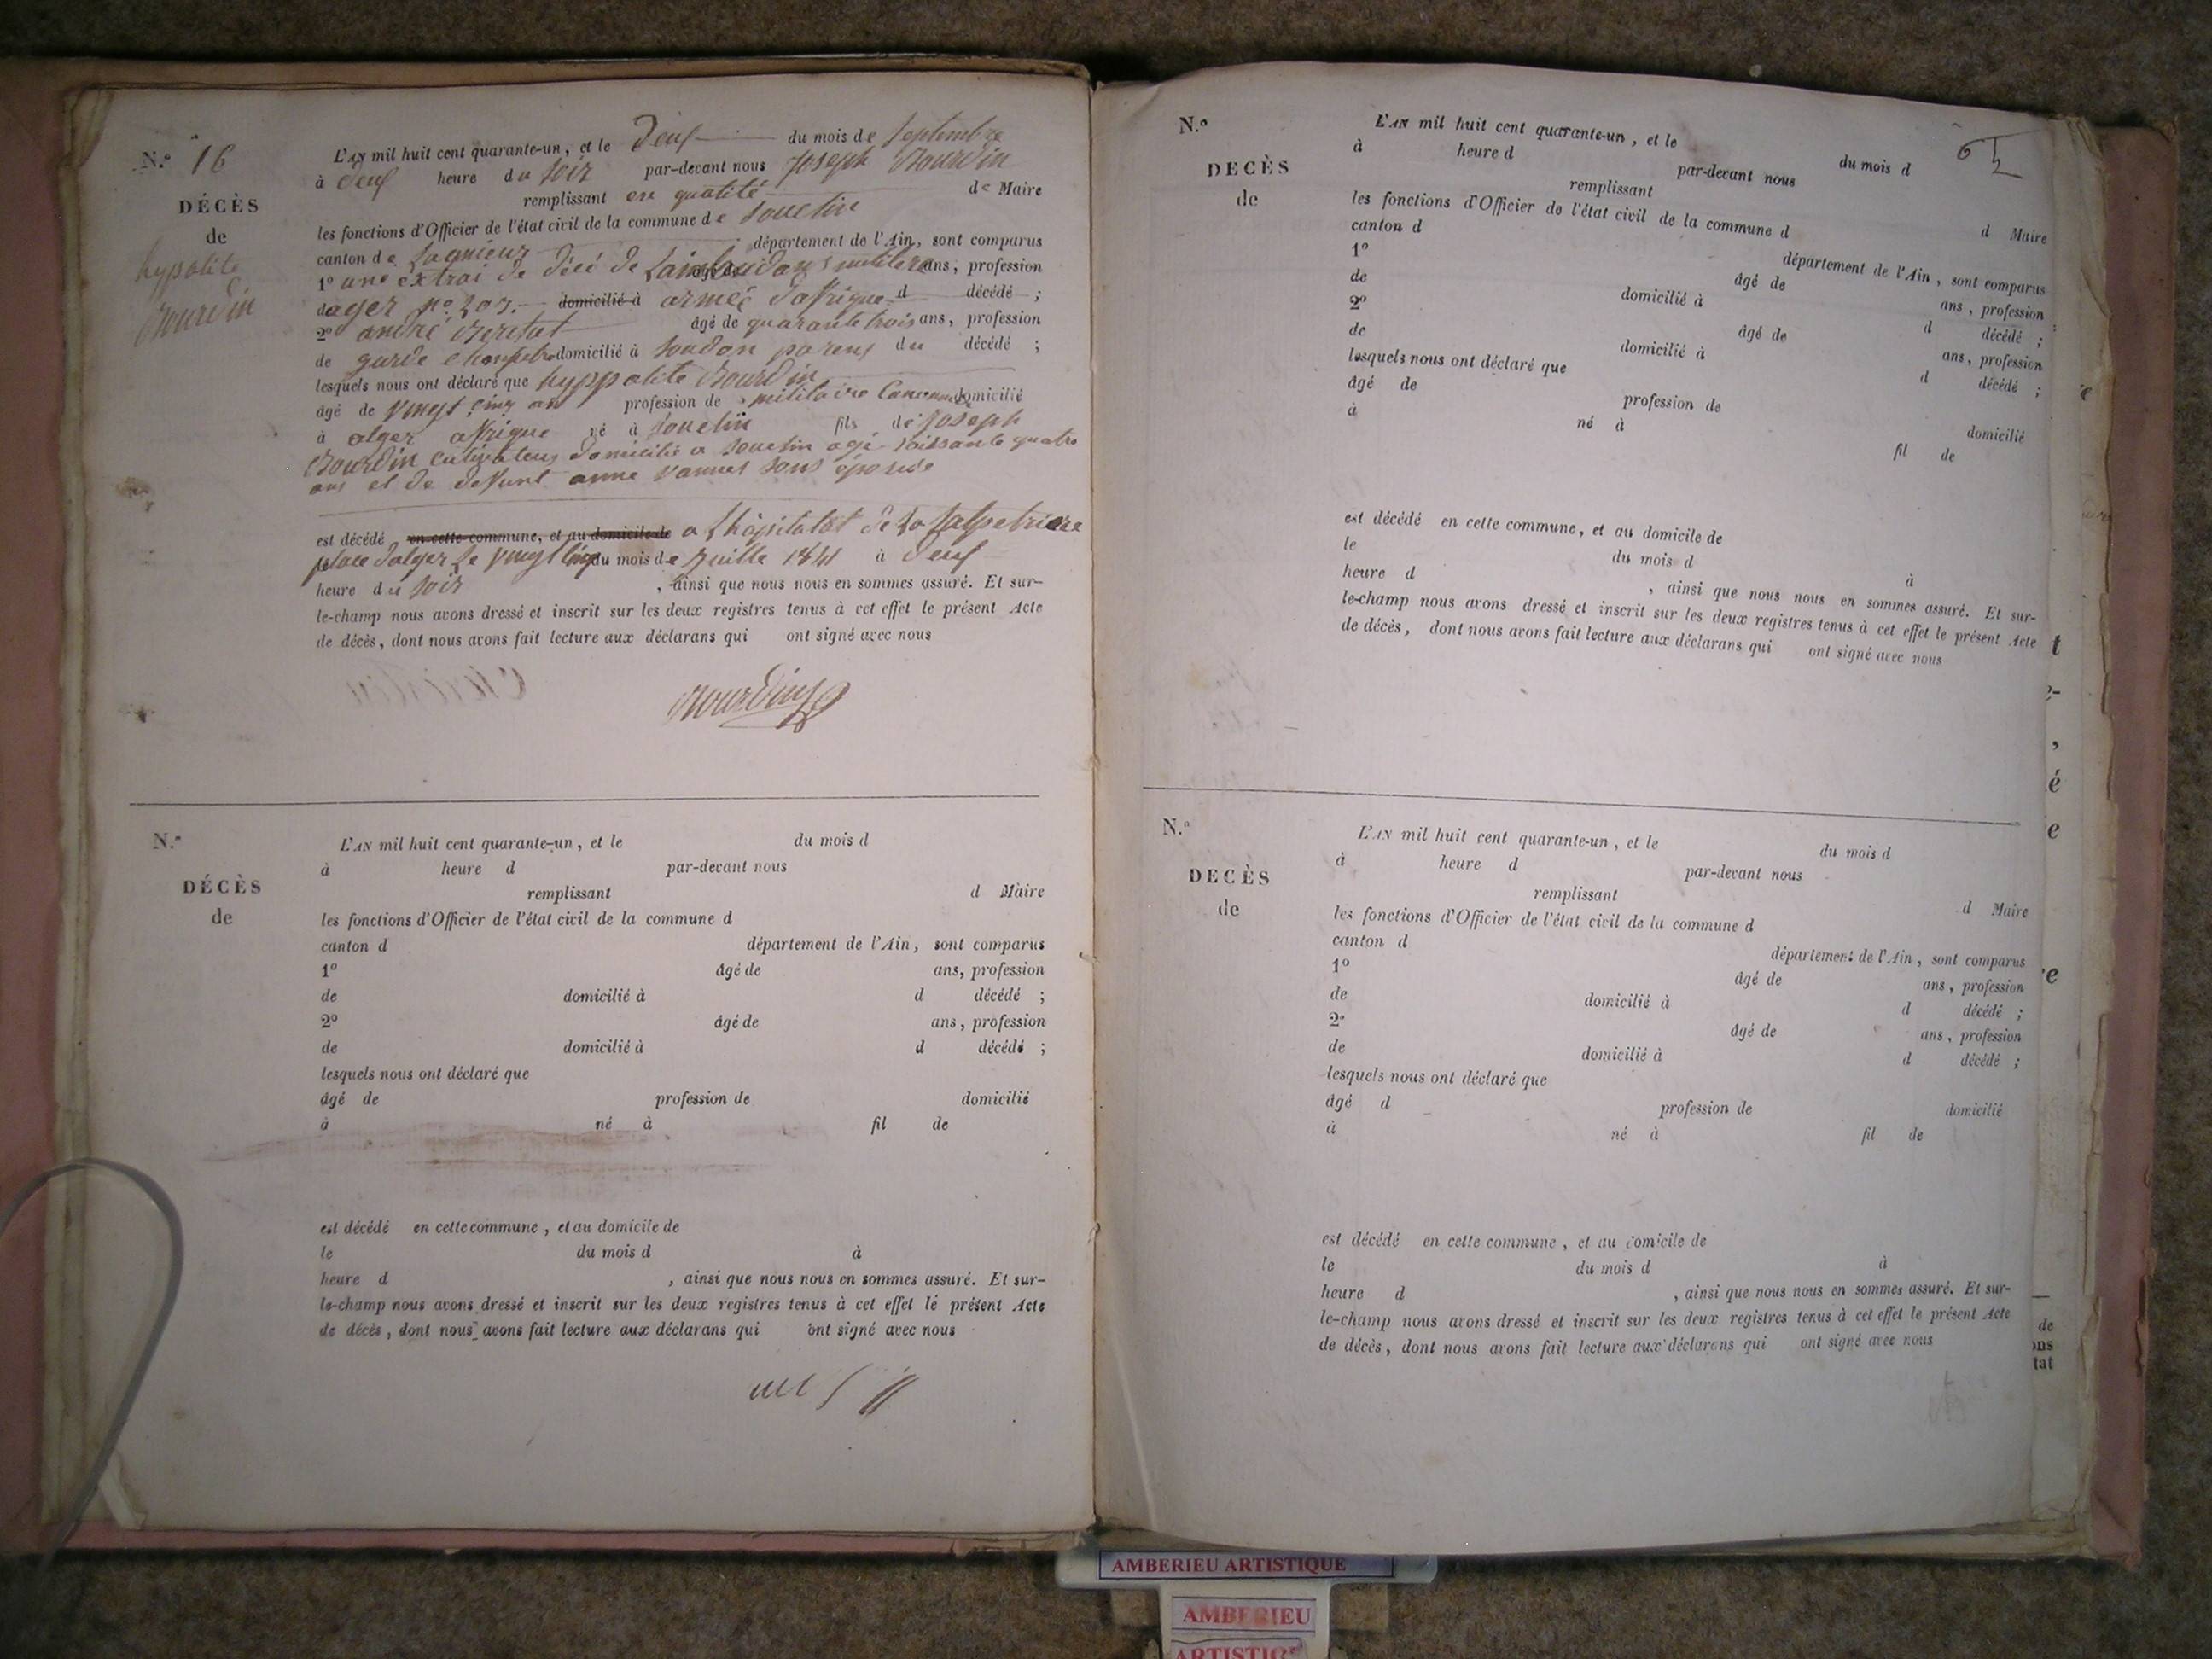 N.° 16
DÉCÈS
de
hypolite
Bourdin
L'AN mil huit cent quarante-un, et le deuf du mois de Septembre
à deuf heure du soir par-devant nous Joseph Bourdin
remplissant en qualité de Maire
les fonctions d'Officier de l'état civil de la commune de Souclin
canton de Lagnieux département de l'Ain, sont comparus
1° une extrai de décé de ans, profession
dager N° 203. domicilié à armée dafrique d décédé ;
2° andré âgé de quarante trois ans, profession
de garde domicilié à Soudon parens du décédé ;
lesquels nous ont déclaré que hyppolite Bourdin
âgé de vingt cinq an profession de militaire domicilié
à alger afrique né à Souclin fils de Joseph
Bourdin domicilié a Souclin agé soissante quatre
ans et de defunt anne vannet sans éposée
est décédé en cette commune, et au domicile de a de la Salpetriere
place dalger le vingt cinq du mois de Juille 1841 à deuf
heure du soir , ainsi que nous nous en sommes assuré. Et sur-
le-champ nous avons dressé et inscrit sur les deux registres tenus à cet effet le présent Acte
de décès, dont nous avons fait lecture aux déclarans qui ont signé avec nous
Bourdin
N.°
DÉCÈS
de
L'AN mil huit cent quarante-un, et le du mois d
à heure d par-devant nous
remplissant d Maire
les fonctions d'Officier de l'état civil de la commune d
canton d département de l'Ain, sont comparus
1° âgé de ans, profession
de domicilié à d décédé ;
2° âgé de ans, profession
de domicilié à d décédé ;
lesquels nous ont déclaré que
âgé de profession de domicilié
à né à fil de
est décédé en cette commune, et au domicile de
le du mois d à
heure d , ainsi que nous nous en sommes assuré. Et sur-
le-champ nous avons dressé et inscrit sur les deux registres tenus à cet effet le présent Acte
de décès, dont nous avons fait lecture aux déclarans qui ont signé avec nous
N.°
DECÈS
de
L'AN mil huit cent quarante-un, et le du mois d
à heure d par-devant nous
remplissant d Maire
les fonctions d'Officier de l'état civil de la commune d
canton d département de l'Ain, sont comparus
1° âgé de ans, profession
de domicilié à d décédé ;
2° âgé de ans, profession
de domicilié à d décédé ;
lesquels nous ont déclaré que
âgé de profession de domicilié
à né à fil de
est décédé en cette commune, et au domicile de
le du mois d à
heure d , ainsi que nous nous en sommes assuré. Et sur-
le-champ nous avons dressé et inscrit sur les deux registres tenus à cet effet le présent Acte
de décès, dont nous avons fait lecture aux déclarans qui ont signé avec nous
N.°
DECÈS
de
L'AN mil huit cent quarante-un, et le du mois d
à heure d par-devant nous
remplissant d Maire
les fonctions d'Officier de l'état civil de la commune d
canton d département de l'Ain, sont comparus
1° âgé de ans, profession
de domicilié à d décédé ;
2° âgé de ans, profession
de domicilié à d décédé ;
lesquels nous ont déclaré que
âgé d profession de domicilié
à né à fil de
est décédé en cette commune, et au domicile de
le du mois d à
heure d , ainsi que nous nous en sommes assuré. Et sur-
le-champ nous avons dressé et inscrit sur les deux registres tenus à cet effet le présent Acte
de décès, dont nous avons fait lecture aux déclarans qui ont signé avec nous
AMBERIEU ARTISTIQUE
AMBERIEU